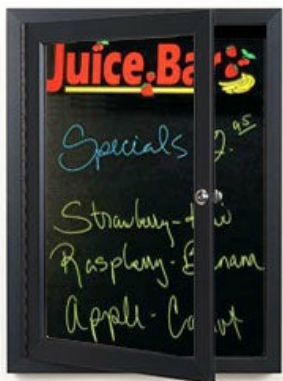 Juice.Bar
Specials 2.95
Strawberry-
Raspberry-Banana
Apple-Carrot